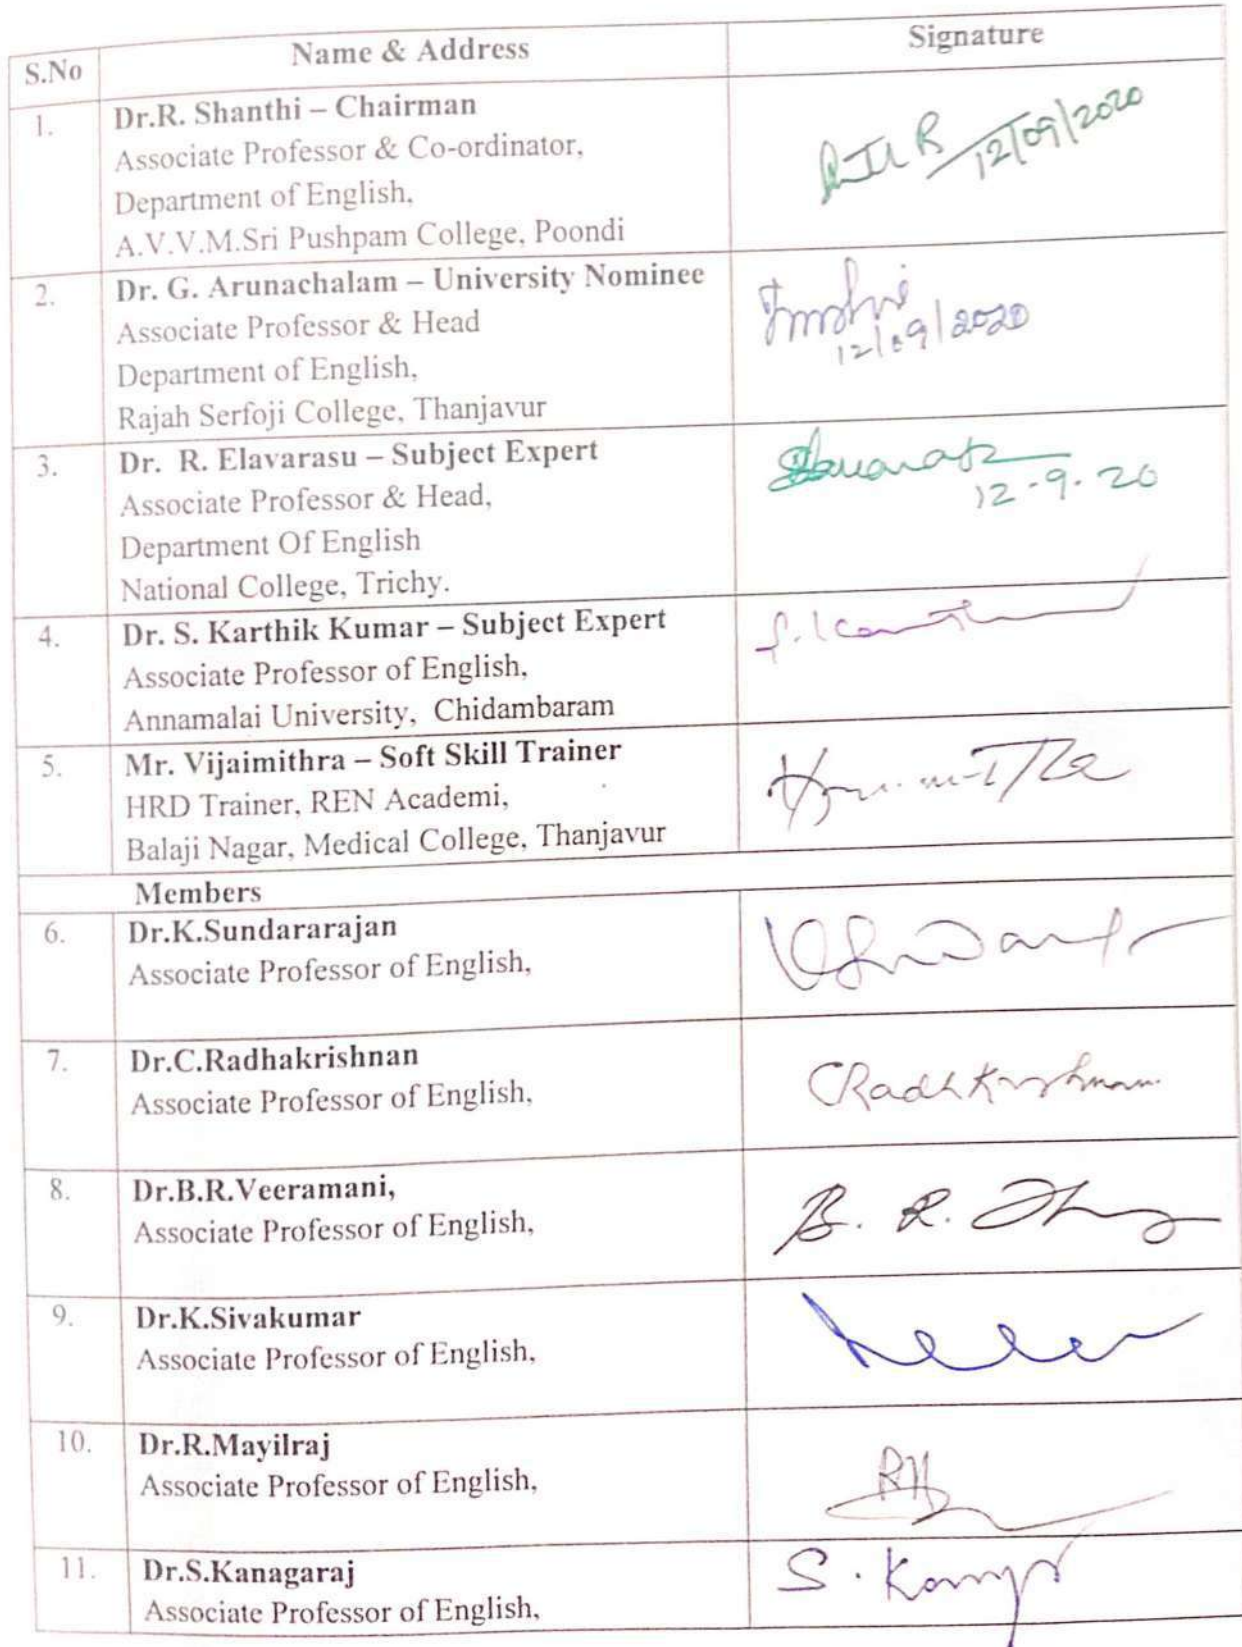 S.No Name & Address Signature
1. Dr.R. Shanthi – Chairman
Associate Professor & Co-ordinator,
Department of English,
A.V.V.M.Sri Pushpam College, Poondi
12/09/2020
2. Dr. G. Arunachalam – University Nominee
Associate Professor & Head
Department of English,
Rajah Serfoji College, Thanjavur
12/09/2020
3. Dr. R. Elavarasu – Subject Expert
Associate Professor & Head,
Department Of English
National College, Trichy.
12-9-20
4. Dr. S. Karthik Kumar – Subject Expert
Associate Professor of English,
Annamalai University, Chidambaram
5. Mr. Vijaimithra – Soft Skill Trainer
HRD Trainer, REN Academi,
Balaji Nagar, Medical College, Thanjavur
Members
6. Dr.K.Sundararajan
Associate Professor of English,
7. Dr.C.Radhakrishnan
Associate Professor of English,
8. Dr.B.R.Veeramani,
Associate Professor of English,
B. R.
9. Dr.K.Sivakumar
Associate Professor of English,
10. Dr.R.Mayilraj
Associate Professor of English,
11. Dr.S.Kanagaraj
Associate Professor of English,
S.